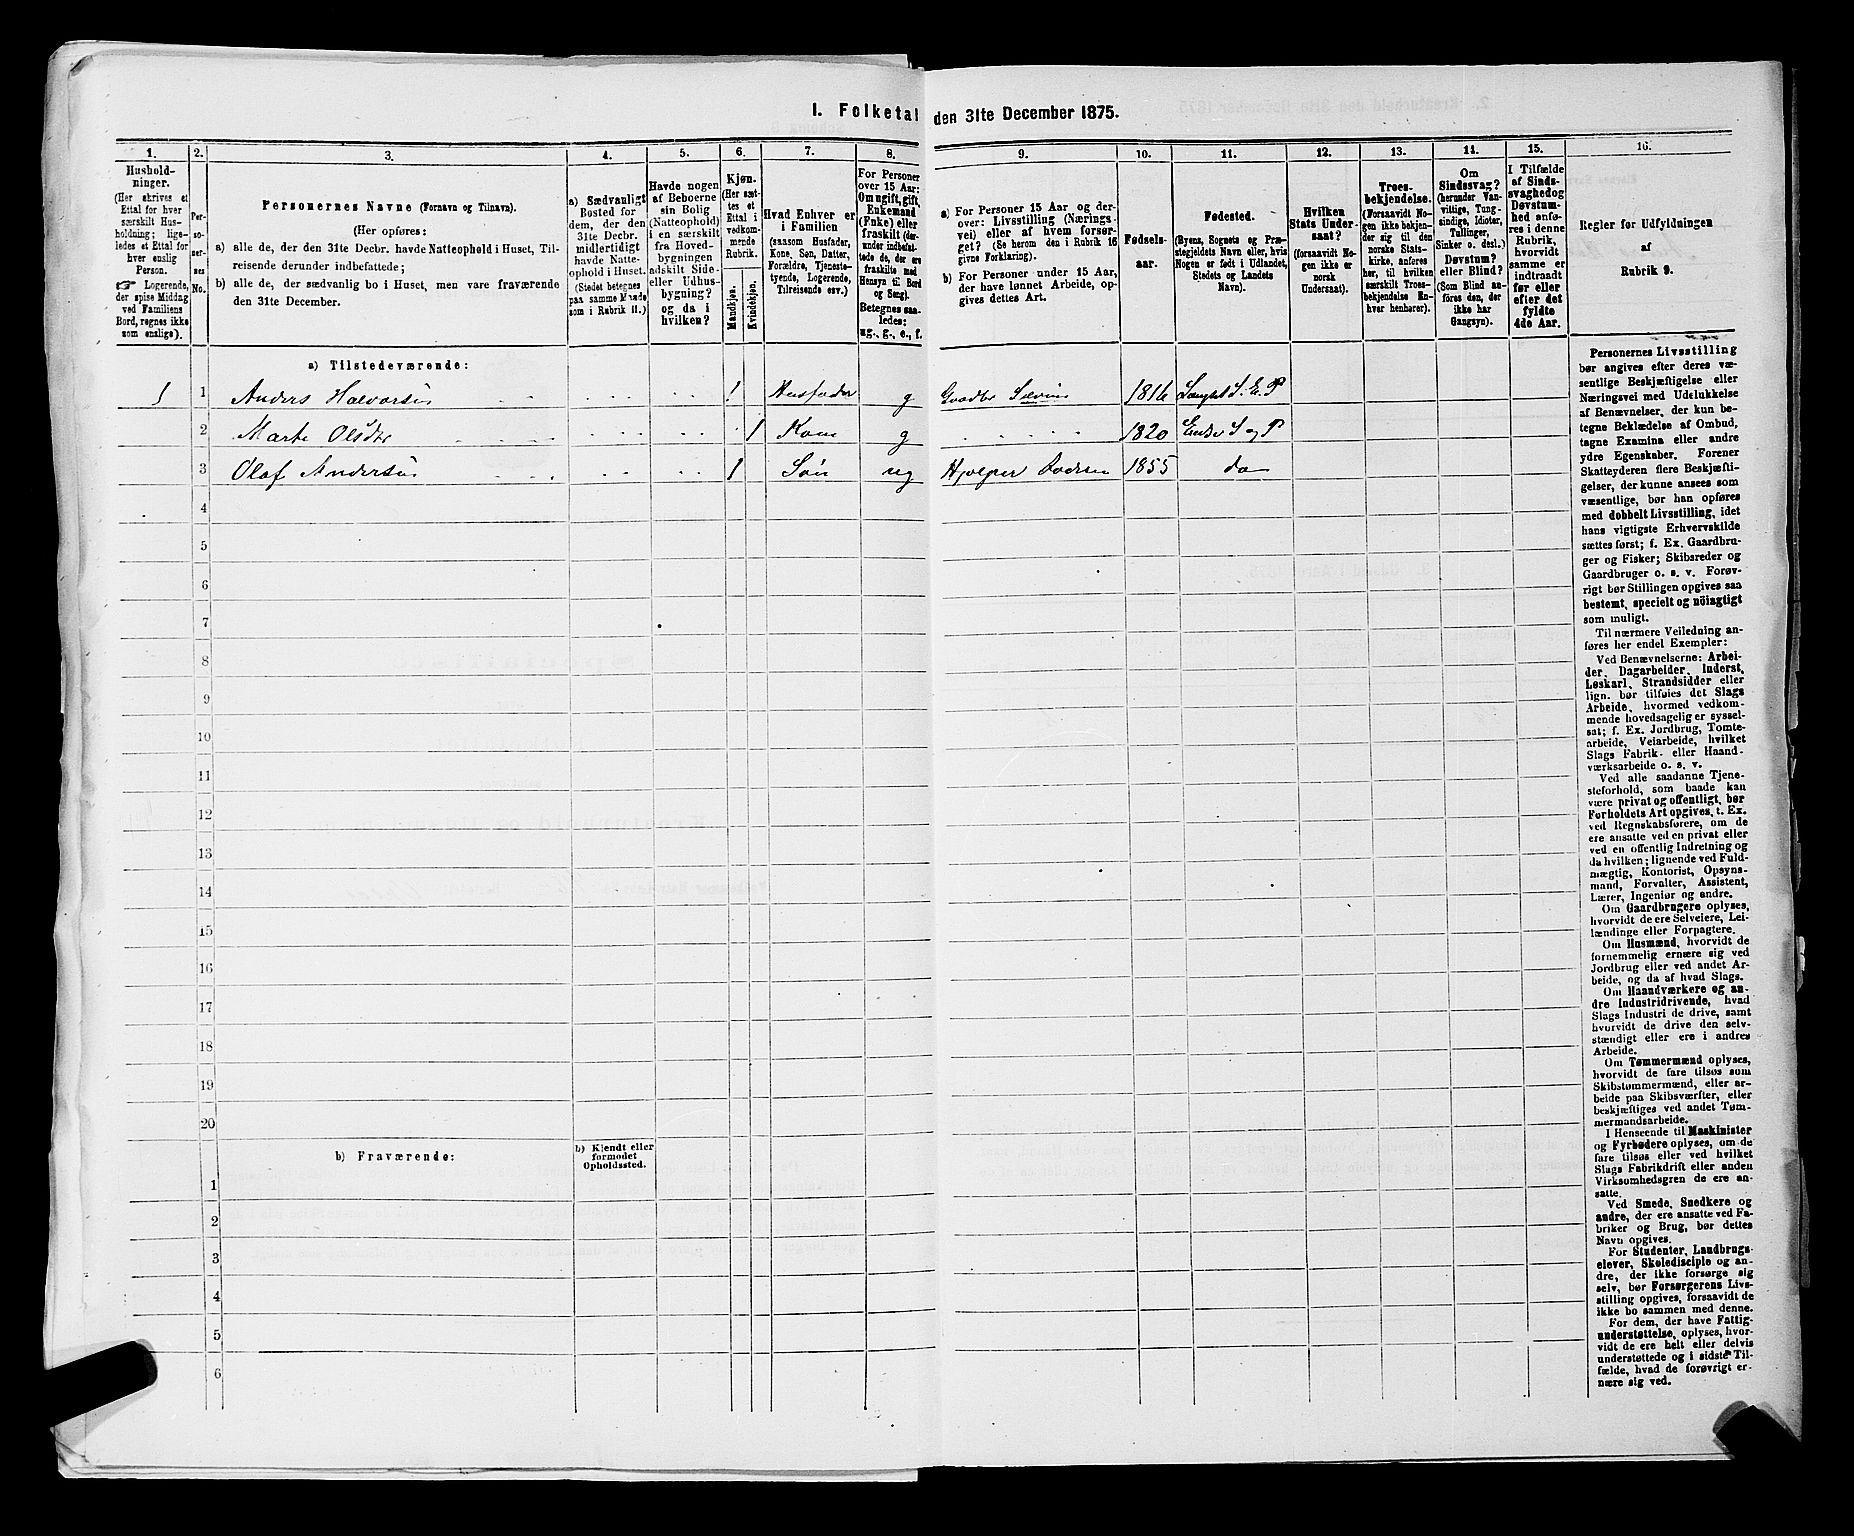 I. Folketal den 31te December 1875.
1. 2. 3. 4. 5. 6. 7. 8. 9. 10. 11. 12. 13. 14. 15. 16.
Hushold-
ninger.
(Her skrives et
Ettal for hver
særskilt Hus-
holdning; lige-
ledes et Ettal for
hver enslig
Person.
☞ Logerende,
der spise Middag
ved Familiens
Bord, regnes ikke
som enslige).
Per-
so-
ner-
nes
No.
Personernes Navne (Fornavn og Tilnavn).
(Her opføres:
a) alle de, der den 31te Decbr. havde Natteophold i Huset, Til-
reisende derunder indbefattede;
b) alle de, der sædvanlig bo i Huset, men vare fraværende
den 31te December.
a) Sædvanligt
Bosted for
dem, der den
31te Decbr.
midlertidigt
havde Natte-
ophold i Huset.
(Stedet betegnes
paa samme Maade
som i Rubrik 11.)
Havde nogen
af Beboerne
sin Bolig
(Natteophold)
i en særskilt
fra Hoved-
bygningen
adskilt Side-
eller Udhus-
bygning?
og da i
hvilken?
Kjøn.
(Her sæt-
tes et
Ettal i
vedkom-
mende
Rubrik.
Mandkjøn.
Kvindekjøn.
Hvad Enhver er
i Familien
(saasom Husfader,
Kone, Søn, Datter,
Forældre, Tjeneste-
tyende, Logerende,
Tilreisende osv.)
For Personer
over 15 Aar:
Om ugift, gift,
Enkemand
(Enke) eller
fraskilt (der-
under indbefat-
tede de, der ere
fraskilte med
Hensyn til Bord
og Sæng).
Betegnes saa-
ledes:
ug., g., e., f.
a) For Personer 15 Aar og der-
over: Livsstilling (Nærings-
vei) eller af hvem forsør-
get? (Se herom den i Rubrik 16
givne Forklaring).
b) For Personer under 15 Aar,
der have lønnet Arbeide, op-
gives dettes Art.
Fødsels-
aar.
Fødested.
(Byens, Sognets og Præ-
stegjeldets Navn eller, hvis
Nogen er født i Udlandet,
Stedets og Landets
Navn).
Hvilken
Stats Under-
saat?
(forsaavidt No-
gen ikke er
norsk
Undersaat).
Troes-
bekjendelse.
(Forsaavidt No-
gen ikke bekjen-
der sig til den
norske Stats-
kirke, anføres
her, til hvilken
særskilt Troes-
bekjendelse En-
hver henhører).
Om
Sindssvag?
(herunder Van-
vittige, Tung-
sindige, Idioter,
Tullinger,
Sinker o. desl.)
Døvstum?
eller Blind?
(Som Blind an-
føres den, der
ikke har
Gangsyn).
I Tilfælde
af Sinds-
svaghed og
Døvstum-
hed anfø-
res i denne
Rubrik,
hvorvidt
samme er
indtraadt
før eller
efter det
fyldte
4de Aar.
Regler for Udfyldningen
af
Rubrik 9.
a) Tilstedeværende:
1 1 Anders Halvorsen 1 Husfader g Gaardbr 1816
2 Marte Olsdtr 1 Kone g 1820
3 Olaf Andersen 1 Søn ug Hjælper 1855 do
4
5
6
7
8
9
10
11
12
13
14
15
16
17
18
19
20
b) Fraværende:
b) Kjendt eller
formodet
Opholdssted.
1
2
3
4
5
6
Personernes Livsstilling
bør angives efter deres væ-
sentlige Beskjæftigelse eller
Næringsvei med Udelukkelse
af Benævnelser, der kun be-
tegne Beklædelse af Ombud,
tagne Examina eller andre
ydre Egenskaber. Forener
Skatteyderen flere Beskjæfti-
gelser, der kunne ansees som
væsentlige, bør han opføres
med dobbelt Livsstilling, idet
hans vigtigste Erhvervskilde
sættes først; f. Ex. Gaardbru-
ger og Fisker; Skibsreder og
Gaardbruger o. s. v. Forøv-
rigt bør Stillingen opgives saa
bestemt, specielt og nöiagtigt
som muligt.
Til nærmere Veiledning an-
føres her endel Exempler:
Ved Benævnelserne: Arbei-
der, Dagarbeider, Inderst,
Løskarl, Strandsidder eller
lign. bør tilføies det Slags
Arbeide, hvormed vedkom-
mende hovedsagelig er syssel-
sat; f. Ex. Jordbrug, Tomte-
arbeide, Veiarbeide, hvilket
Slags Fabrik- eller Haand-
værksarbeide o. s. v.
Ved alle saadanne Tjene-
steforhold, som baade kan
være privat og offentligt, bør
Forholdets Art opgives, t. Ex.
ved Regnskabsførere, om de
ere ansatte ved en privat eller
ved en offentlig Indretning og
da hvilken; lignende ved Fuld-
mægtig, Kontorist, Opsyns-
mand, Forvalter, Assistent,
Lærer, Ingeniør og andre.
Om Gaardbrugere oplyses,
hvorvidt de ere Selveiere, Lei-
lændinge eller Forpagtere.
Om Husmænd, hvorvidt de
fornemmelig ernære sig ved
Jordbrug eller ved andet Ar-
beide, og da af hvad Slags.
Om Haandværkere og an-
dre Industridrivende, hvad
Slags Industri de drive, samt
hvorvidt de drive den selv-
stændigt eller ere i andres
Arbeide.
Om Tømmermænd oplyses,
hvorvidt de fare tilsøs som
Skibstømmermænd, eller ar-
beide paa Skibsværfter, eller
beskjæftiges ved andet Tøm-
mermandsarbeide.
I Henseende til Maskinister
og Fyrbødere oplyses, om de
fare tilsøs eller ved hvilket
Slags Fabrikdrift eller anden
Virksomhedsgren de ere an-
satte.
Ved Smede, Snedkere og
andre, der ere ansatte ved Fa-
briker og Brug, bør dettes
Navn opgives.
For Studenter, Landbrugs-
elever, Skoledisciple og an-
dre, der ikke forsørge sig
selv, bør Forsørgerens Livs-
stilling opgives, forsaavidt de
ikke bo sammen med denne.
For dem, der have Fattig-
understøttelse, oplyses, hvor-
vidt de ere helt eller delvis
understøttede og i sidste Til-
fælde, hvad de forøvrigt er-
nære sig ved.